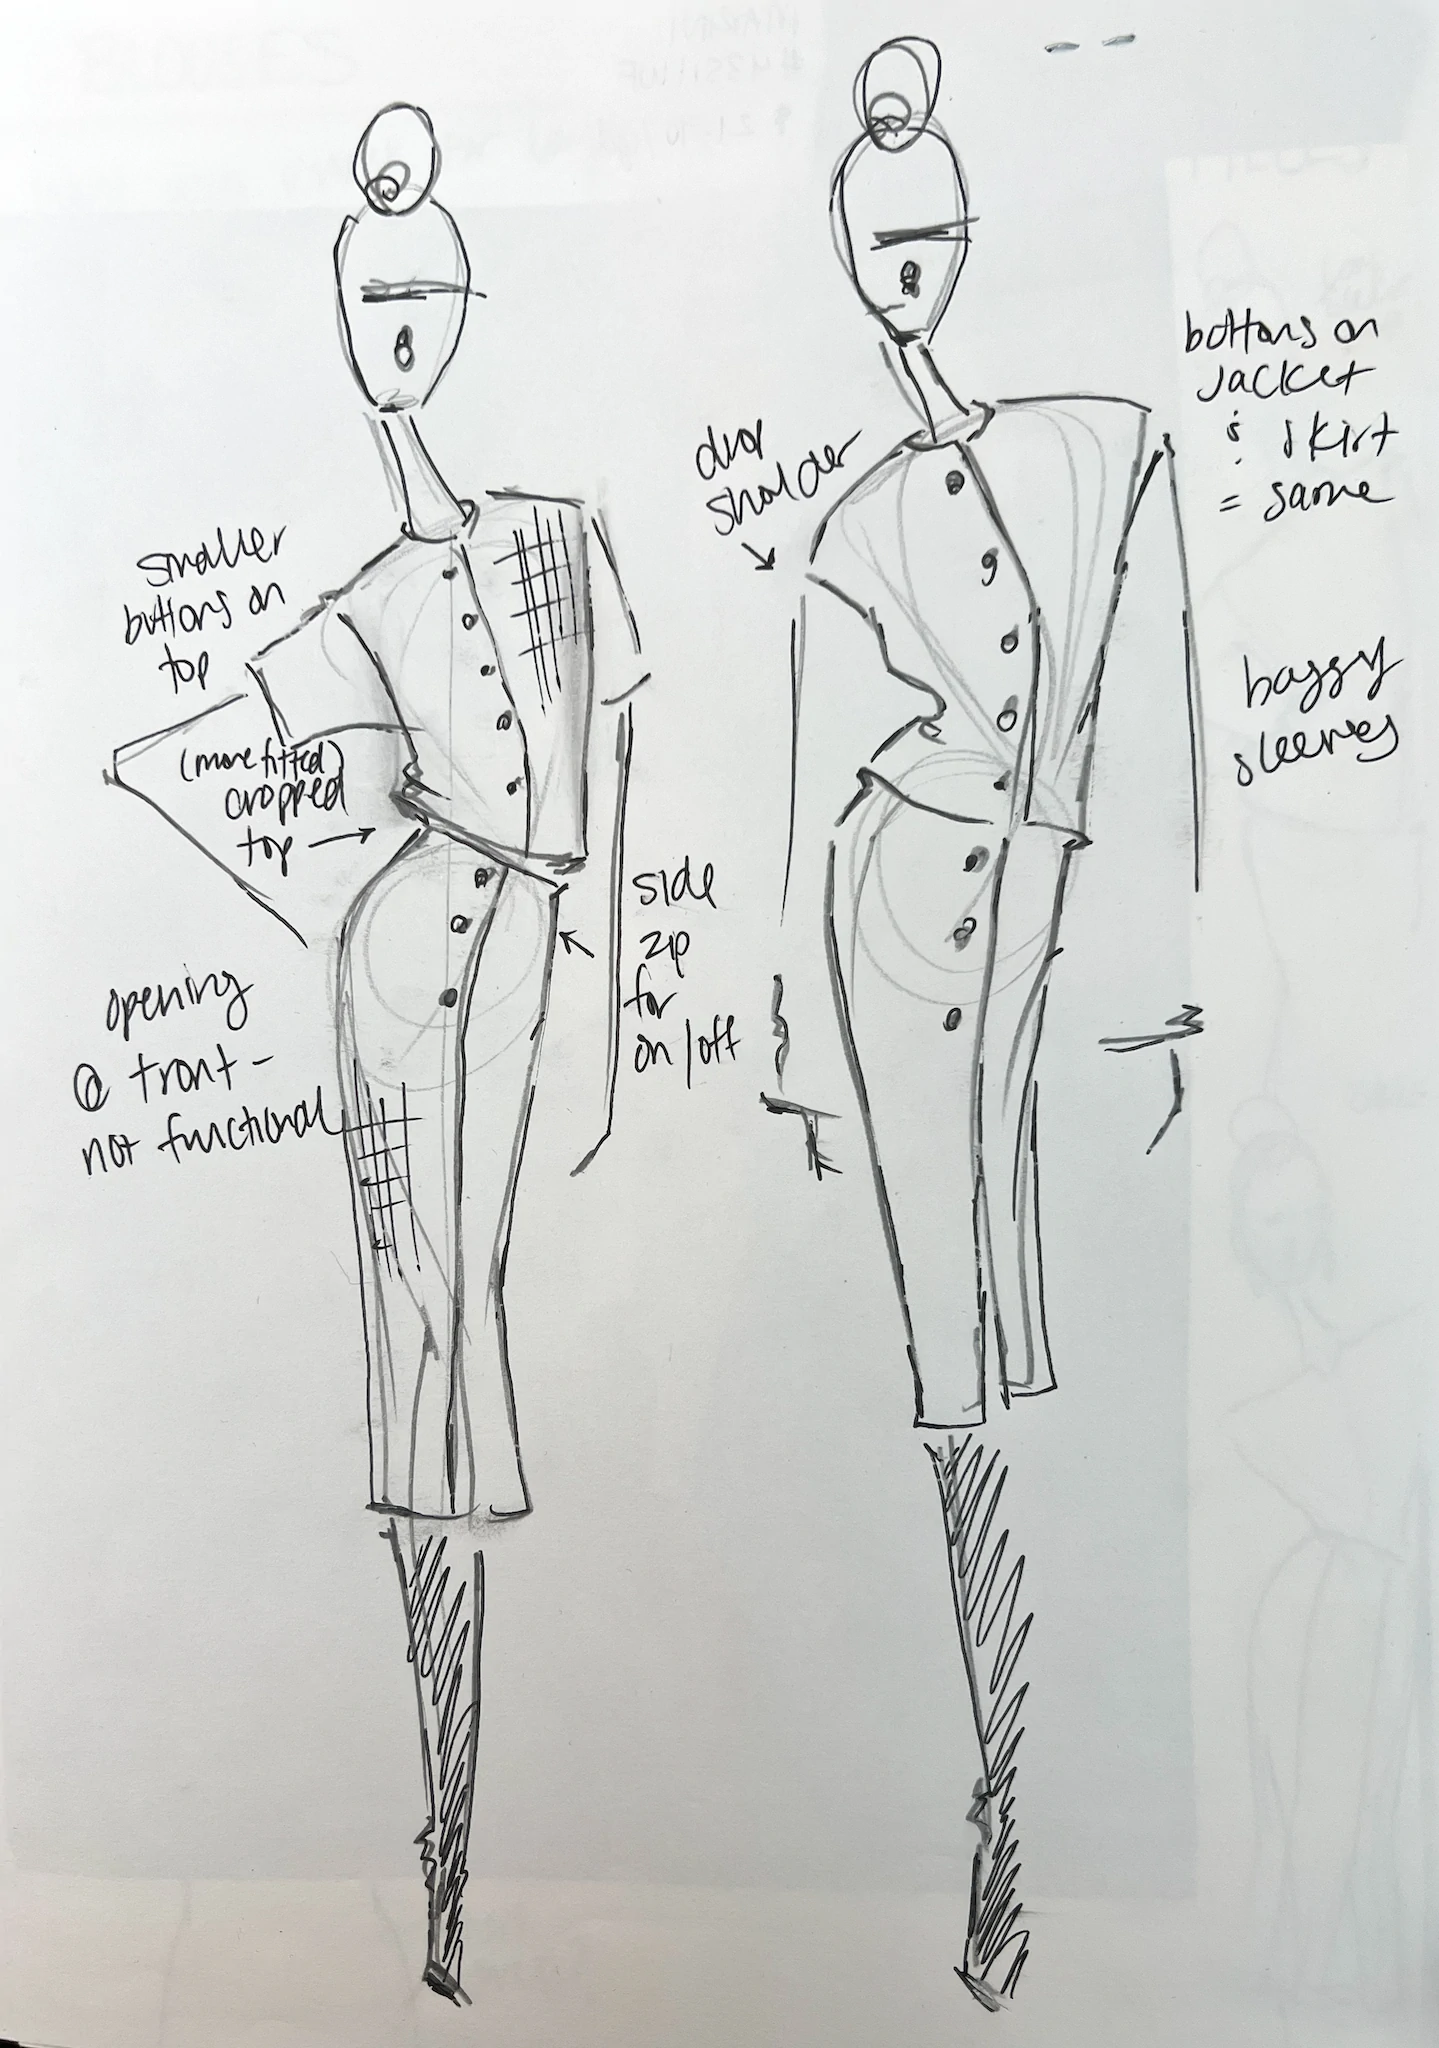 smaller
buttons on
top
(more fitted)
cropped
top
opening
@ front -
not functional
side
zip
for
on/off
drop
sholder
buttons on
jacket
& skirt
= same
baggy
sleeves